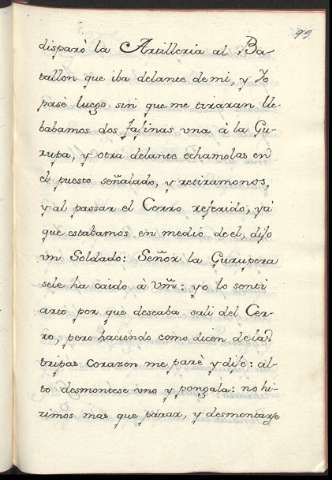 99
disparò la Artilleria al Ba-
tallon que iba delante de mi, y Yo
pasè luego sin que me tiraran lle-
babamos dos fajinas vna à la Gu-
rupa, y otra delante echamolas en
el puesto señalado, y retiramonos
y al passar el Cerro referido, yà
que estabamos en medio de el, dijo
vn Soldado: Señor la Gurupera
sele ha caido à Vm: yo lo senti
arto por que deseaba salir del Cer-
ro, pero haciendo como dicen de las
tripas corazon me parè y dije: al-
to desmontese uno y pongala: no hi-
zimos mas que parar, y desmontarse